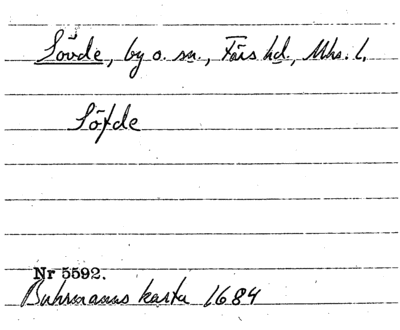 Sövde, by o. sn., Färs hd., Mhs. l.
Söfde
Nr 5592.
Buhrmanns karta 1684